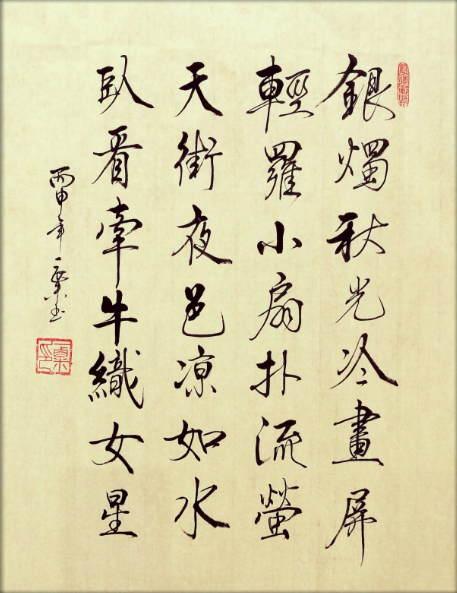 銀燭秋光冷畫屏
輕羅小扇扑流螢
天街夜色凉如水
臥看牽牛織女星
丙申年